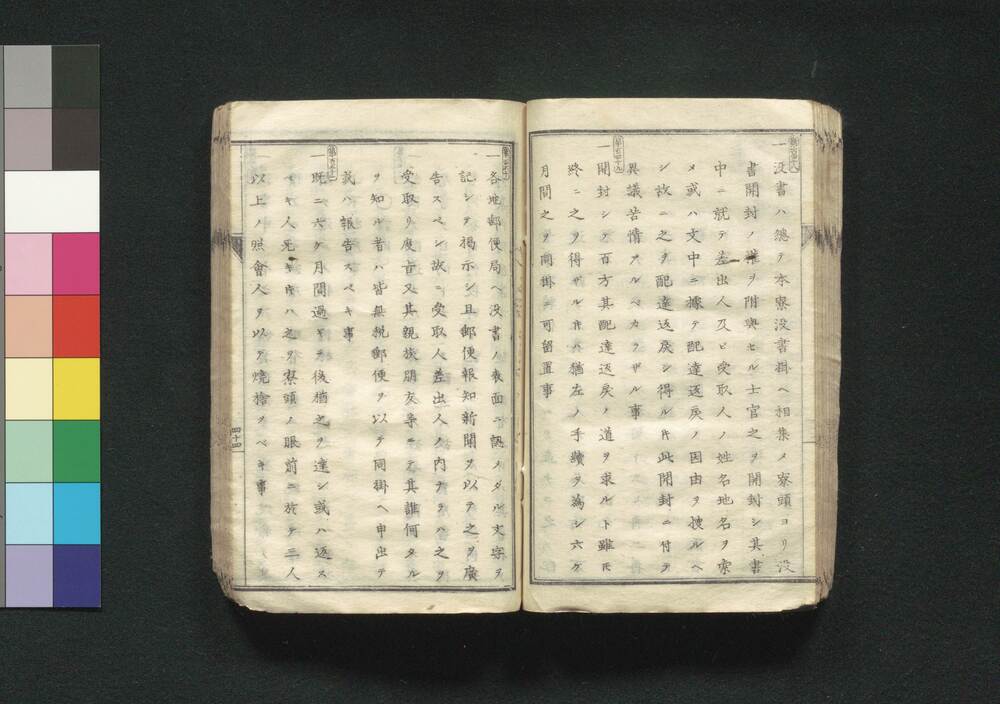 第百四十八
一没書ハ總テ本寮没書掛ヘ相集メ寮頭ヨリ没
書開封ノ権ヲ附與セル士官之ヲ開封シ其書
中ニ就テ差出人及ヒ受取人ノ姓名地名ヲ索
メ或ハ文中ニ據テ配達返戻ノ因由ヲ捜ルヘ
シ故ニ之ヲ配達返戻シ得ル𪜈此開封ニ付テ
異議苦情アルベカラザル事
第百四十九
一開封シテ百方其配達返戻ノ道ヲ求ルト雖𪜈
終ニ之ヲ得ザルキハ猶左ノ手續ヲ為シ六ケ
月間之ヲ同掛ニ可留置事
一各地郵便局ヘ没書ノ表面ニ認メタル文字ヲ
記シテ掲示シ且郵便報知新聞ヲ以テ之ヲ廣
告スベシ故ニ受取人差出人ノ内ナラハ之ヲ
受取リ度旨又其親族朋友等ニテ其誰何タル
ヲ知ル者ハ皆無税郵便ヲ以テ同掛ヘ申出テ
或ハ報告スベキ事
一既ニ六ケ月間過キテ後猶之ヲ達シ或ハ返ス
ベキ人无キキハ之ヲ寮頭ノ眼前ニ於テ三人
以上ノ照會人ヲ以テ燒捨ツベキ事
四十四